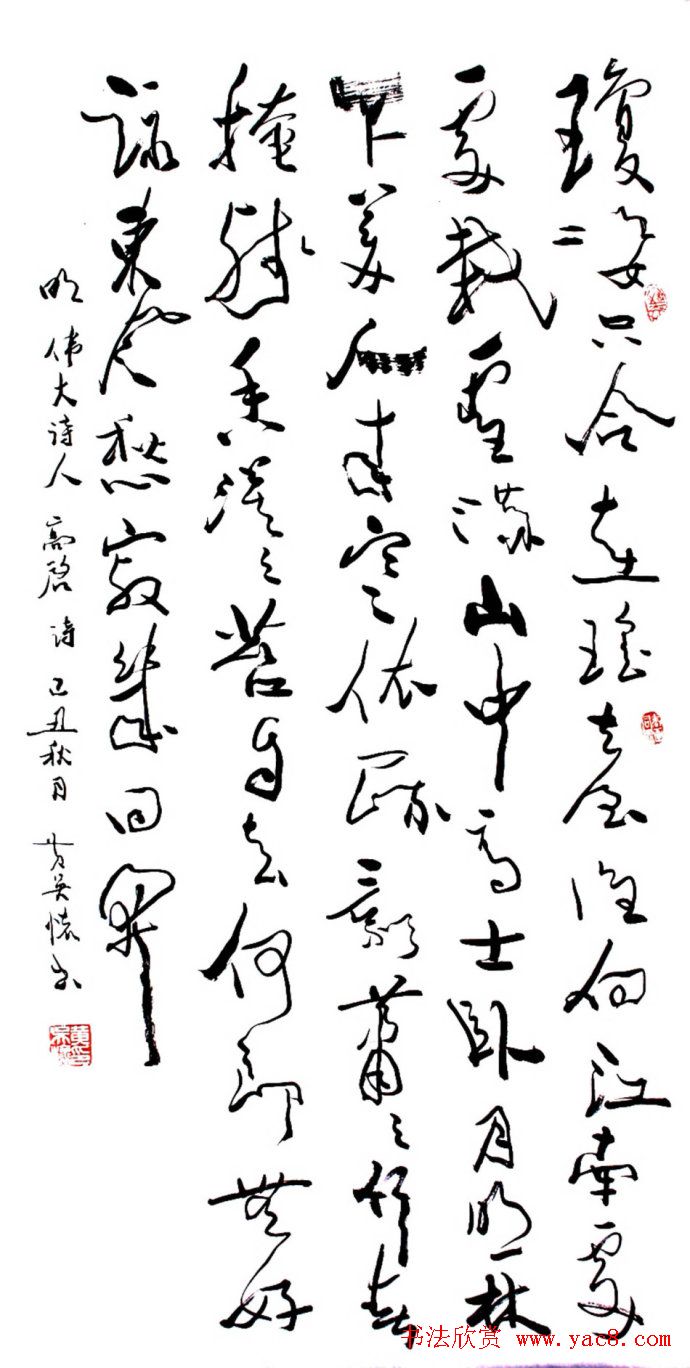 瓊姿只合在瑶臺誰向江南處
處栽雪滿山中高士卧月明林
下美人來寒依疏影蕭〻竹春
掩殘香漠〻苔自去何郎無好
詠東風愁寂幾回開
明 伟大诗人 高啓 诗 己丑秋月 黄吴怀书
书法欣赏 www.yac8.com